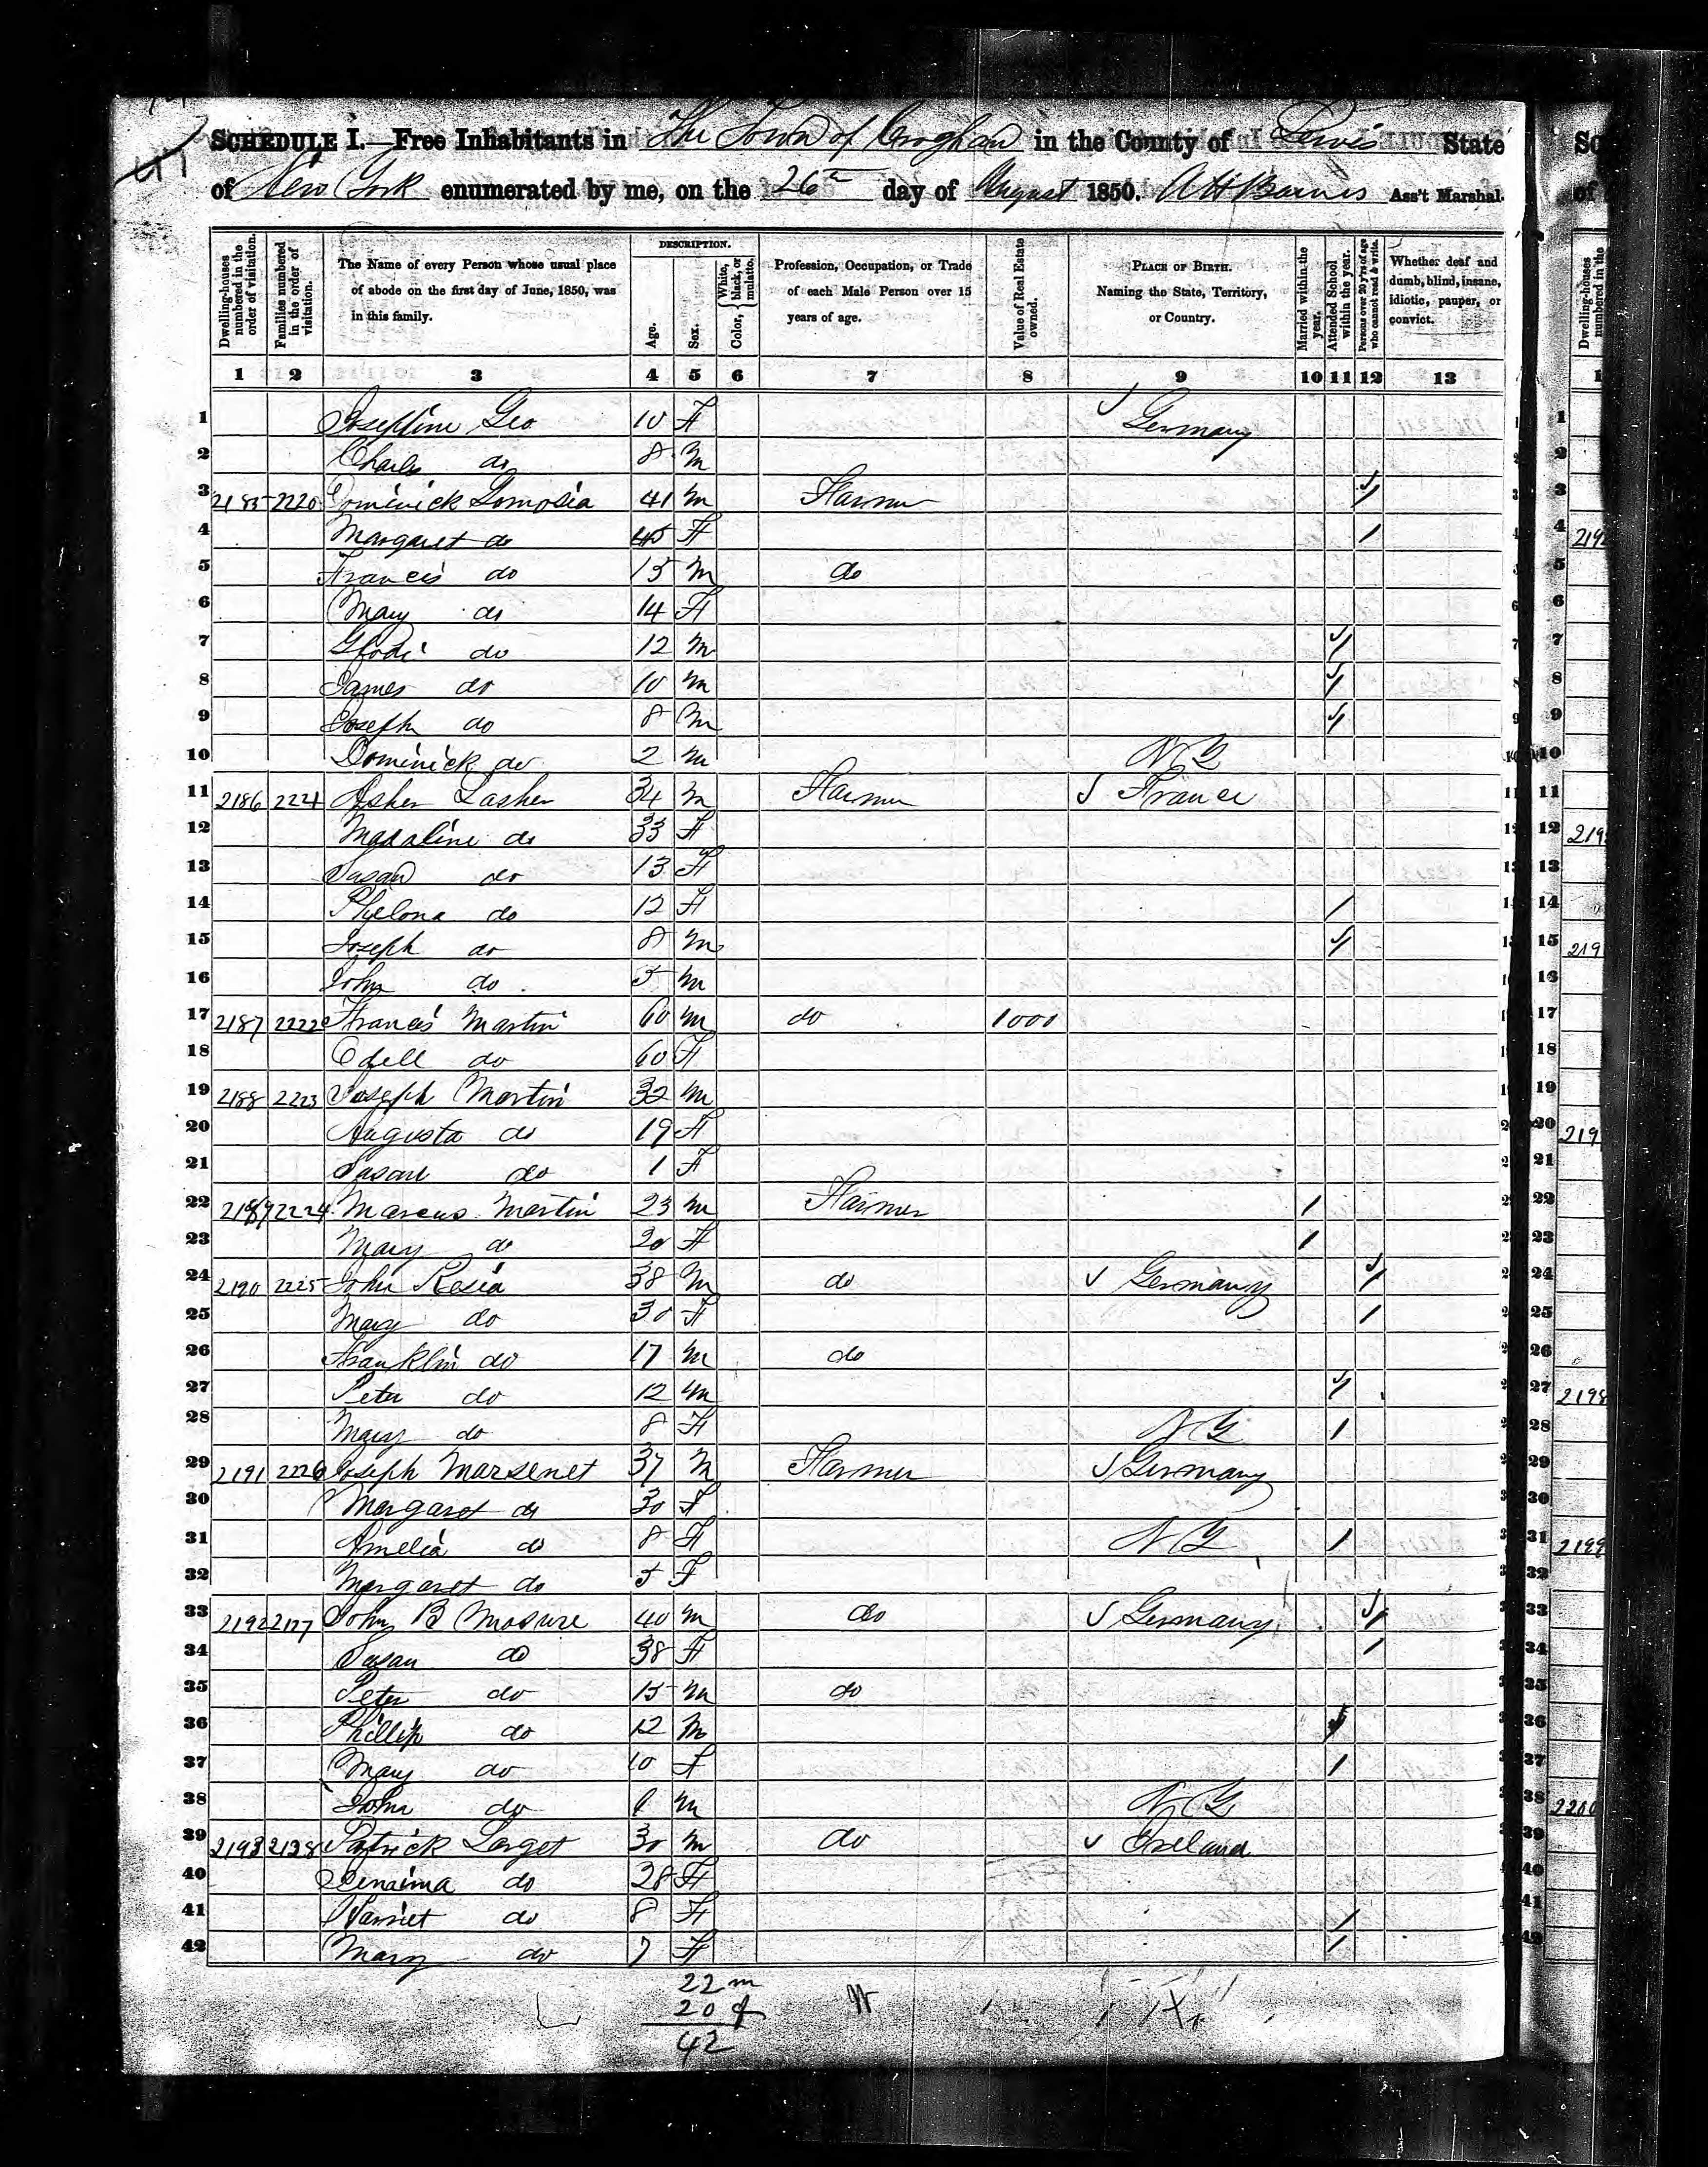 SCHEDULE I.—Free Inhabitants in The Town of Croghan in the County of Lewis State
of New York enumerated by me, on the 26th day of August 1850. A H Barnes Ass't Marshal.
Dwelling-houses numbered in the order of visitation.
Families numbered in the order of visitation.
The Name of every Person whose usual place of abode on the first day of June, 1850, was in this family.
DESCRIPTION.
Age.
Sex.
Color, White, black, or mulatto.
Profession, Occupation, or Trade of each Male Person over 15 years of age.
Value of Real Estate owned.
PLACE OF BIRTH. Naming the State, Territory, or Country.
Married within the year.
Attended School within the year.
Persons over 20 y'rs of age who cannot read & write.
Whether deaf and dumb, blind, insane, idiotic, pauper, or convict.
1 2 3 4 5 6 7 8 9 10 11 12 13
1 Josephine Geo 10 F Germany
2 Charles do 8 M
3 2185 2220 Dominick 41 M Farmer /
4 Margaret do 45 F /
5 Francis do 15 M do
6 Mary do 14 F
7 do 12 M /
8 James do 10 M /
9 Joseph do 8 M /
10 Dominick do 2 M N Y
11 2186 2221 Asher Lasher 34 M Farmer France
12 Madaline do 33 F
13 Susan do 13 F
14 do 12 F /
15 Joseph do 8 M /
16 John do 5 M
17 2187 2222 Francis Martin 60 M do 1000
18 Odell do 60 F
19 2188 2223 Joseph Martin 32 M
20 Augusta do 19 F
21 Susan do 1 F
22 2189 2224 Marcus Martin 23 M Farmer /
23 Mary do 20 F /
24 2190 2225 John Resia 38 M do Germany /
25 Mary do 30 F /
26 Franklin do 17 M do
27 Peter do 12 M /
28 Mary do 8 F N Y /
29 2191 2226 Joseph Marsenet 37 M Farmer Germany
30 Margaret do 30 F
31 Amelia do 8 F N Y /
32 Margaret do 5 F
33 2192 2127 John B Mosure 40 M do Germany /
34 Susan do 38 F /
35 Peter do 15 M do
36 Phillip do 12 M /
37 Mary do 10 F /
38 John do M N Y
39 2193 2128 Patrick Larget 30 M do Ireland
40 do 28 F
41 Harriet do 8 F /
42 Mary do 7 F /
22 m
20 f
42